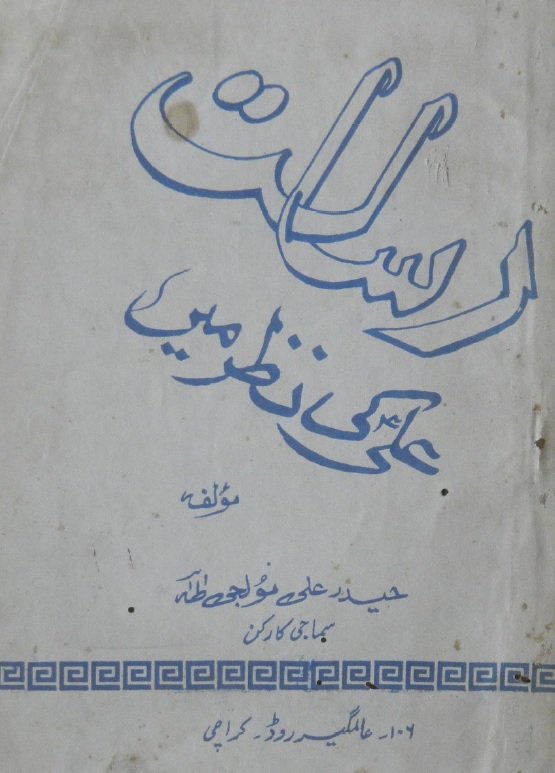 رسالت
علیؑ کی نظر میں
مؤلفہ
حیدر علی مولجی طٰہٰ
سماجی کارکن
۱۰۶۔ عالمگیر روڈ۔ کراچی